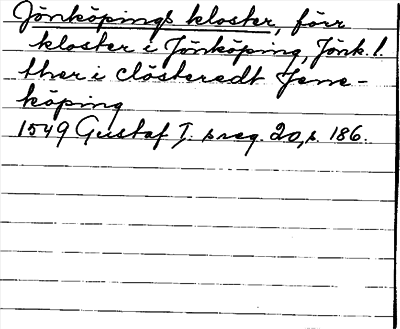 Jönköpings kloster, förr
kloster i Jönköping, Jönk. l.
ther i clösteredt Jene-
köping
1549 Gustaf I. s reg. 20, s. 186.